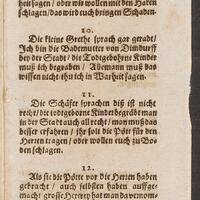 heit sagen / oder wir wollen mit den Haken
schlagen / das wird euch bringen Schaden.
10.
Die kleine Grethe sprach gar gerad /
Ich bin die Bademutter von Dimdurff
bey der Stadt / die Todtgebohrne Kinder
muß ich begraben / Allemann muß das
wissen nicht / thu ich in Warheit sagen.
11.
Die Schäffer sprachen diß ist nicht
recht / die todtgeborne Kinder begräbt man
in der Stadt auch all recht / man muß das
besser erfahren / ihr solt die Pött für den
Herren tragen / oder wollen euch zu Bo-
den schlagen.
12.
Als sie die Pötte vor die Herren haben
gebracht / auch selbsten haben auffge-
macht / grosse Herren hat man da vernom-